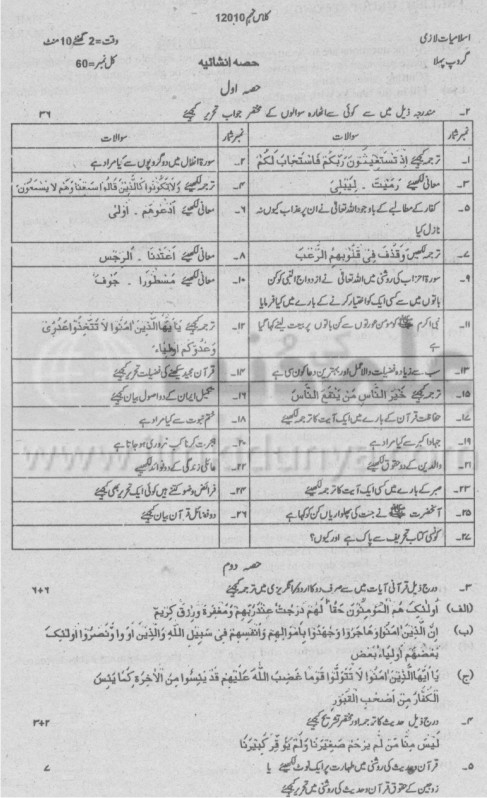 کلاس نہم 12010
اسلامیات لازمی
وقت=2 گھنٹے 10 منٹ
گروپ پہلا
حصہ انشائیہ
کل نمبر=60
حصہ اول
۲۔ مندرجہ ذیل میں سے کوئی سے اٹھارہ سوالوں کے مختصر جواب تحریر کیجئے ۳۶
نمبرشمار سوالات نمبرشمار سوالات
۱۔ ترجمہ کیجئے اِذْ تَسْتَغِيْثُوْنَ رَبَّكُمْ فَاسْتَجَابَ لَكُمْ ۲۔ سورۃ انفال میں دو گروہوں سے کیا مراد ہے
۳۔ معانی لکھئے رَمَيْتَ ۔ لِيُبْلِيَ ۴۔ ترجمہ لکھئے وَلَا تَكُوْنُوْا كَالَّذِيْنَ قَالُوْا سَمِعْنَا وَهُمْ لَا يَسْمَعُوْنَ
۵۔ کفار کے مطالبے کے باوجود اللہ تعالیٰ نے ان پر عذاب کیوں نہ نازل کیا ۶۔ معانی لکھئے اُدْعُوْهُمْ ۔ اَوْلٰى
۷۔ ترجمہ لکھیں وَقَذَفَ فِى قُلُوْبِهِمُ الرُّعْبَ ۸۔ معانی لکھئے اَعْتَدْنَا ۔ الرِّجْسَ
۹۔ سورۃ احزاب کی روشنی میں اللہ تعالیٰ نے ازدواج النبی کو کن باتوں میں سے کسی ایک کو اختیار کرنے کے بارے میں کیا فرمایا ۱۰۔ معانی لکھئے مَسْطُوْرًا ۔ جَوْفِ
۱۱۔ نبی اکرم ﷺ کو مومن عورتوں سے کن باتوں پر بیعت لینے کیلئے کہا گیا ہے ۱۲۔ ترجمہ کیجئے يٰاَيُّهَا الَّذِيْنَ اٰمَنُوْا لَا تَتَّخِذُوْا عَدُوِّىْ وَعَدُوَّكُمْ اَوْلِيَاءَ
۱۳۔ سب سے زیادہ فضیلت والا عمل اور بہترین دعا کونسی ہے ۱۴۔ قرآن مجید سیکھنے کی فضیلت تحریر کیجئے
۱۵۔ ترجمہ کیجئے خَيْرُ النَّاسِ مَنْ يَنْفَعُ النَّاسَ ۱۶۔ تکمیل ایمان کے دو اصول بیان کیجئے
۱۷۔ حفاظت قرآن کے بارے میں ایک آیت کا ترجمہ لکھیئے ۱۸۔ ختم نبوت سے کیا مراد ہے
۱۹۔ جہاد اکبر سے کیا مراد ہے ۲۰۔ ہجرت کرنا کب ضروری ہو جاتا ہے
۲۱۔ والدین کے دو حقوق لکھیئے ۲۲۔ عائلی زندگی کے دو فوائد لکھیئے
۲۳۔ صبر کے بارے میں کسی ایک آیت کا ترجمہ لکھیئے ۲۴۔ فرائض وضو کتنے ہیں کوئی ایک تحریر بھی کیجئے
۲۵۔ آنحضرت ﷺ نے جنت کی پھلواریاں کن کو کہا ہے ۲۶۔ دو فضائل قرآن بیان کیجئے
۲۷۔ کونسی کتاب تحریف سے پاک ہے اور کیوں؟
حصہ دوم
۳۔ درج ذیل قرآنی آیات میں سے صرف دو کا اردو یا انگریزی میں ترجمہ کیجئے ۶+۶
(الف) اُولٰئِكَ هُمُ الْمُؤْمِنُوْنَ حَقًّا لَهُمْ دَرَجٰتٌ عِنْدَ رَبِّهِمْ وَمَغْفِرَةٌ وَرِزْقٌ كَرِيْمٌ
(ب) اِنَّ الَّذِيْنَ اٰمَنُوْا وَهَاجَرُوْا وَجٰهَدُوْا بِاَمْوَالِهِمْ وَاَنْفُسِهِمْ فِىْ سَبِيْلِ اللّٰهِ وَالَّذِيْنَ اٰوَوْا وَّنَصَرُوْا اُولٰئِكَ
بَعْضُهُمْ اَوْلِيَاءُ بَعْضٍ
(ج) يٰاَيُّهَا الَّذِيْنَ اٰمَنُوْا لَا تَتَوَلَّوْا قَوْمًا غَضِبَ اللّٰهُ عَلَيْهِمْ قَدْ يَئِسُوْا مِنَ الْاٰخِرَةِ كَمَا يَئِسَ
الْكُفَّارُ مِنْ اَصْحٰبِ الْقُبُوْرِ
۴۔ درج ذیل حدیث کا ترجمہ اور مختصر تشریح کیجئے ۲+۳
لَيْسَ مِنَّا مَنْ لَّمْ يَرْحَمْ صَغِيْرَنَا وَلَمْ يُوَقِّرْ كَبِيْرَنَا
۵۔ قرآن وحدیث کی روشنی میں طہارت پر ایک نوٹ لکھیئے یا ۷
زوجین کے حقوق قرآن وحدیث کی روشنی میں تحریر کیجئے